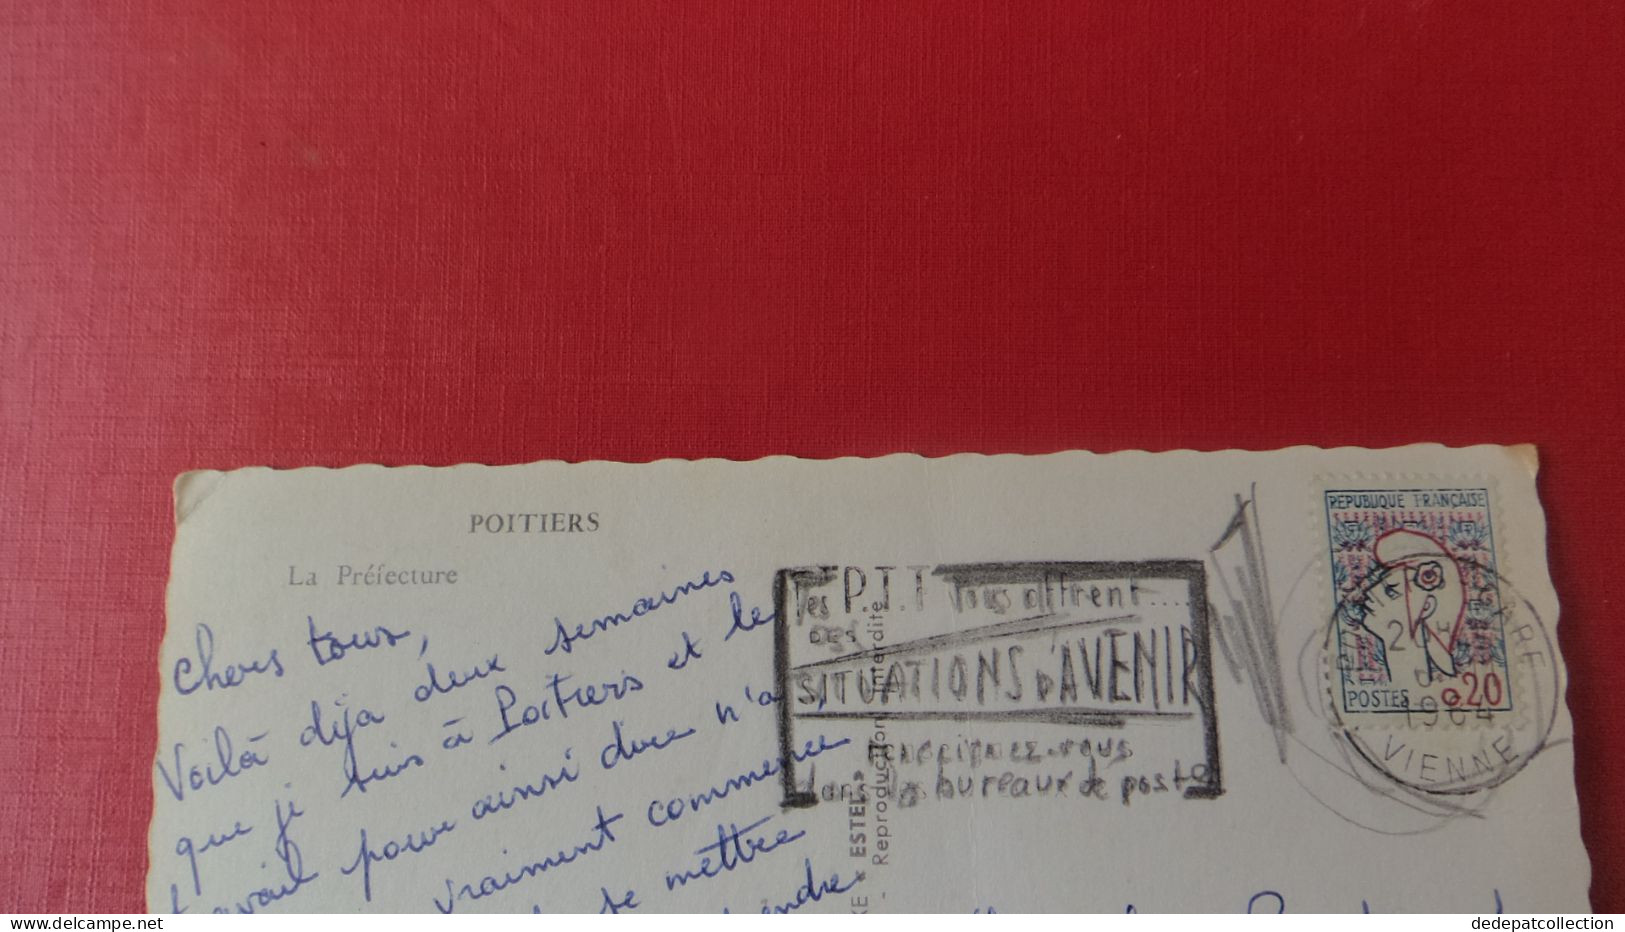 POITIERS
La Préfecture
Chers tous,
Voilà déja deux semaines
que je suis à Poitiers et le
travail pour ainsi dire n'a
vraiment commence
se mettre
Les P.T.T vous offrent....
DES
SITUATIONS D'AVENIR
Renseignez-vous
dans les bureaux de poste
« ESTEL »
- Reproduction Interdite
REPUBLIQUE FRANÇAISE
POSTES 0,20
POITIERS GARE
1964
VIENNE
dedepatcollection